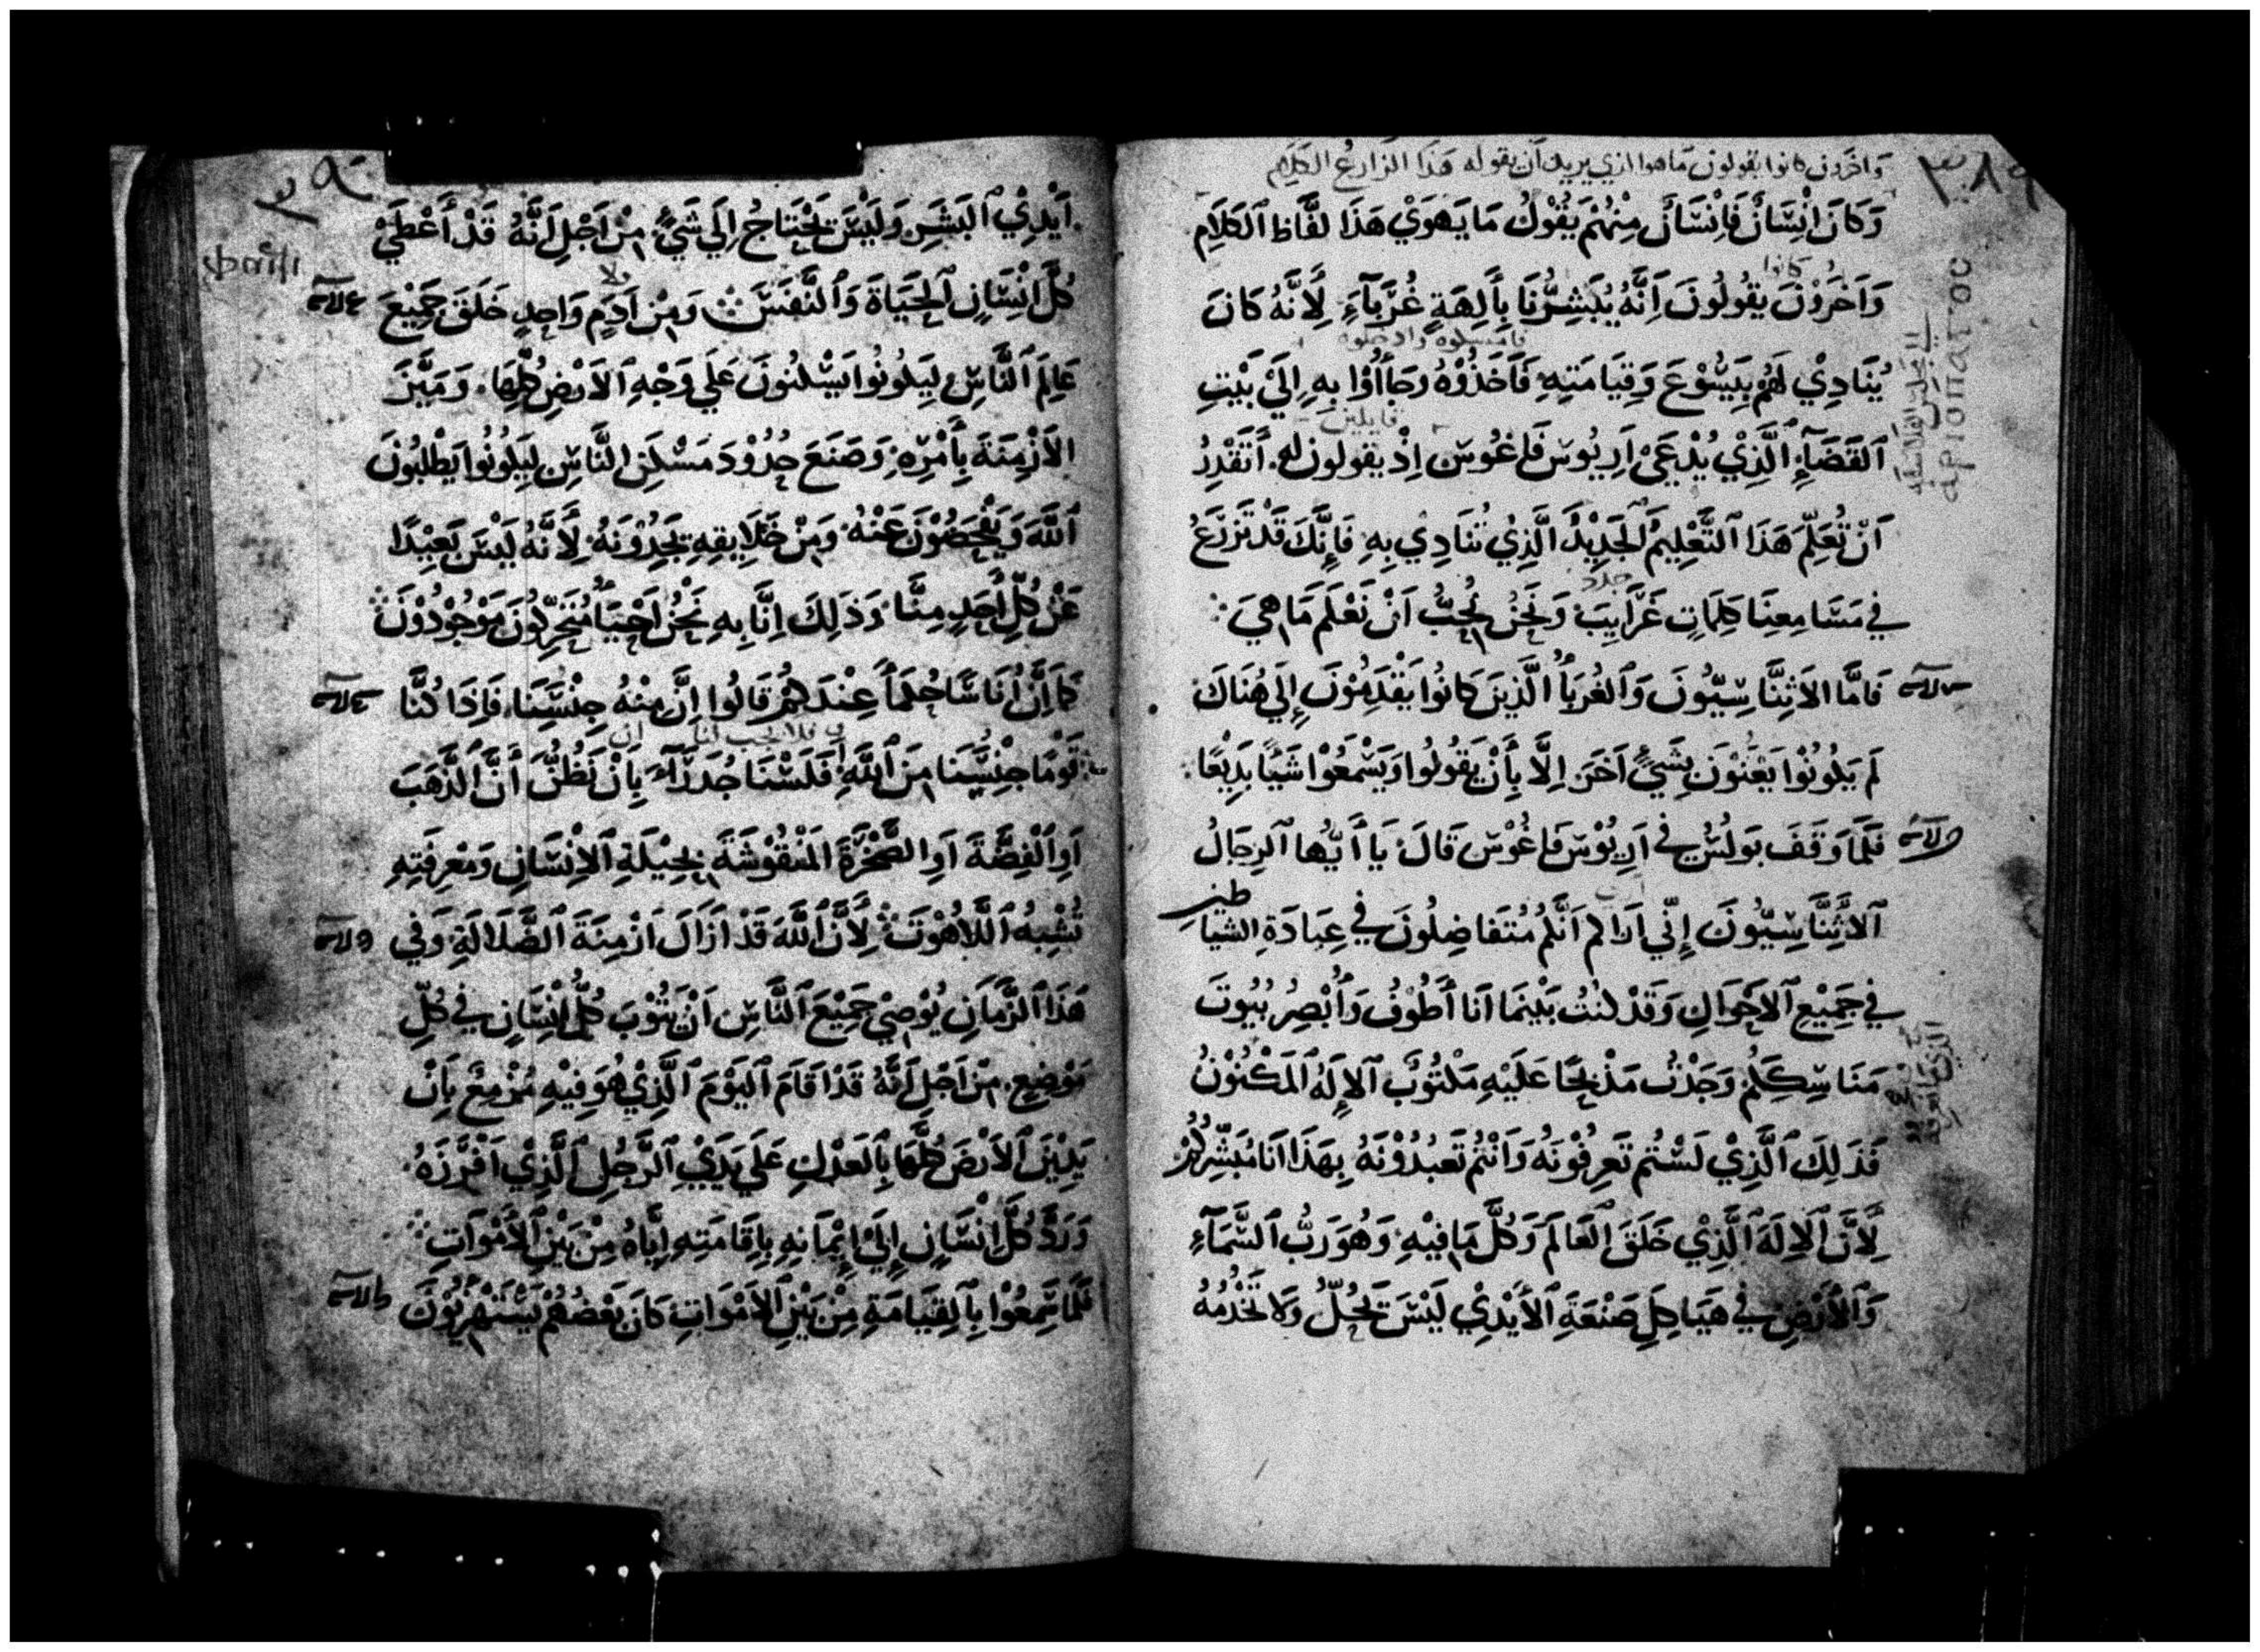 ٣٨٩
واخرون كانوا يقولون ما هوا الذي يريد ان يقوله هذا الزارع الكلام
وَكَانَ اِنْسَانٌ فَاِنْسَانٌ مِنْهُمْ يَقُوْلُ مَا يَهوَيْ هَذَا لَفَّاظ اَلكَلَامِ
كانوا
وَاَخَرُوْنَ يَقُولُونَ اَنَّهُ يُبَشِرُّنَا بِأَلِهَةٍ غُرَبَآءَ لِأَنَّهُ كَانَ
فامسكوه وادخلوه
يُنَادِيْ لَهُمْ بِيَسُوْعَ وَقِيَامَتِهِ فَأَخَذُوْهُ وجَأُوْا بِهِ اِلَيْ بَيْتِ
قايلين
اَلقَضَآءِ اَلَّذِيْ يُدْعَىْ اَرِيُوْسَ فَاغُوسَ اِذْ يقولون له أَتَقْدِرُ
اَنْ تُعَلِّمَ هَذَا اَلتَّعْلِيمُ اَلجَدِيْدُ اَلَّذِيْ تُنَادِي بِهِ فَاِنَّكَ قَدْ تَزرَعُ
جدد
في مَسَامِعِنَا كَلِمَاتٍ غَرَايِبَ وَنَحْنُ نُحِبُّ اَنْ نَعْلَم مَا هِيَ
فَامَّا الاَثِنَّاسِيُّونَ وَاَلغُرَبَأُ الَّذِينَ كانُوا يَقْدِمُوْنَ إِلَي هُنَاكَ
لَم يَكُونُوْا يَعْنَوْنَ بِشَيْءٍ اَخَرَ اِلَّا بِأَنْ يَقُولُوا وَيَسْمَعُوْا شَيْئًا بَدِيْعًا
فَلَمَّا وَقَفَ بَولُسُ في اَرِيُوْسَ فَاغُوْسَ قَالَ يَا أَيُّها اَلرِجَالُ
اَلاَثِنَّاسِيُّونَ إِنّي اَرَاكم اَنَّكُم مُتَفَاضِلُونَ في عِبَادَةِ الشياطين
في جَمِيْعِ اَلاَحْوَالِ وَقَدْ كنتُ بَيْنَمَا اَنَا أَطُوْفُ وَأُبْصِرُ بُيُوتَ
مَنَاسِكِكُمْ وَجَدْتُ مَذْبَحًا عَلَيْهِ مَكْتُوْبٌ اَلاِلَهُ اَلمَكْنُوْنُ
فَذَلِكَ اَلَّذِيْ لَسْتُم تَعرِفُوْنَهُ وَاَنْتُم تَعبُدُوْنَهُ بِهَذَا اَنَا مُبَشِّرُكُمْ
لِأَنَّ اَلاِلَهَ اَلَّذِيْ خَلَقَ اَلعَالَمَ وَكُلَّ مَا فِيْهِ وَهُوَ رَبُّ اَلسَّمَآءِ
وَاَلأَرْضِ في هَيَاكِلِ صَنْعَةَ اَلاَيْدِيْ لَيْسَ يَحُلُّ وَلا تَخْدُمُهُ
٣٩٠
اَيْدِيْ اَلبَشَرِ وَلَيْسَ يَحْتَاجُ اِلَي شَيْءٍ مِنْ اَجْلِ اَنَّهُ قَدْ أَعْطَيْ
كُلَّ اِنْسَانٍ اَلحَيَاةَ وَاَلنَّفَسَ وَمِنْ اَدَمٍ وَاحِدٍ خَلَقَ جَمِيْعَ
عَالِمَ اَلنَّاسِ لِيَكُونُوا يَسْكُنُونَ عَلَي وَجْهِ اَلاَرْضِ كُلِّهَا وَمَيَّزَ
الاَزْمِنَةَ بِأَمْرِهِ وَصَنَعَ حُدُوْدَ مَسْكَنِ النَّاسِ لِيَكُونُوا يَطْلُبُونَ
اَللَّهَ وَيَفْحَصُوْنَ عَنْهُ وَمِنْ خَلَايِقِهِ يَجِدُوْنَهُ لِأَنَّهُ لَيْسَ بَعِيْدًا
عَنْ كُلِّ أَحَدٍ مِنَّا وَذَلِكَ اِنَّا بِهِ نَحْنُ اَحْيَأ مُتَحَرِّكُونَ مَوْجُوْدُوْنَ
كَمَا اِنَّ أُنَاسًا حُكَمَأً عِنْدَكُم قَالُوا اِنَّ مِنْهُ جِنْسَنَا فَاِذَا كُنَّا
فلا يجب لنا ان
قَوْمًا جِنْسُنَا مِنَ اَللَّهِ فَلَسْنَا جُدَرَآءَ بِاَنْ نَظُنَّ أَنَّ اَلذَّهَبَ
اَوِ اَلْفِضَّةَ اَوِ الصَّخْرَةَ المَنْقُوْشَةَ بِحِيْلَةِ اَلاِنْسَانِ وَمَعْرِفَتِهِ
تُشْبِهُ اَللَّاهُوْتَ لِأَنَّ اَللَّهَ قَدْ اَزَالَ اَزْمِنَةَ اَلضَّلَالَةِ وَفي
هَذَا اَلزَّمَانِ يُوْصِيْ جَمِيْعَ اَلنَّاسِ اَنْ يَتُوْبَ كُلُّ اِنْسَانٍ في كُلِّ
مَوْضِعٍ مِنْ اَجْلِ اَنَّهُ قَدْ اَقَامَ اَليَوْمَ اَلَّذِيْ هُوَ فِيْهِ مُزْمِعٌ بِاَنْ
يَدِيْنَ اَلاَرْضَ كُلَّهَا بِاَلعَدْلِ عَلَي يَدَيِ اَلرَّجُلِ اَلَّذِي اَفْرَزَهُ
وَرَدَّ كُلَّ اِنْسَانٍ إِلَيْ إِيْمَانِهِ بِاِقَامَتِهِ اِيَّاهُ مِنْ بَيْنِ اَلأَمْوَاتِ
فَلَمَّا سَمِعُوْا بِاَلقِيَامَةِ مِنْ بَيْنِ اَلاَمْوَاتِ كَانَ بَعْضُهُم يَسْتَهْزِيُوْنَ